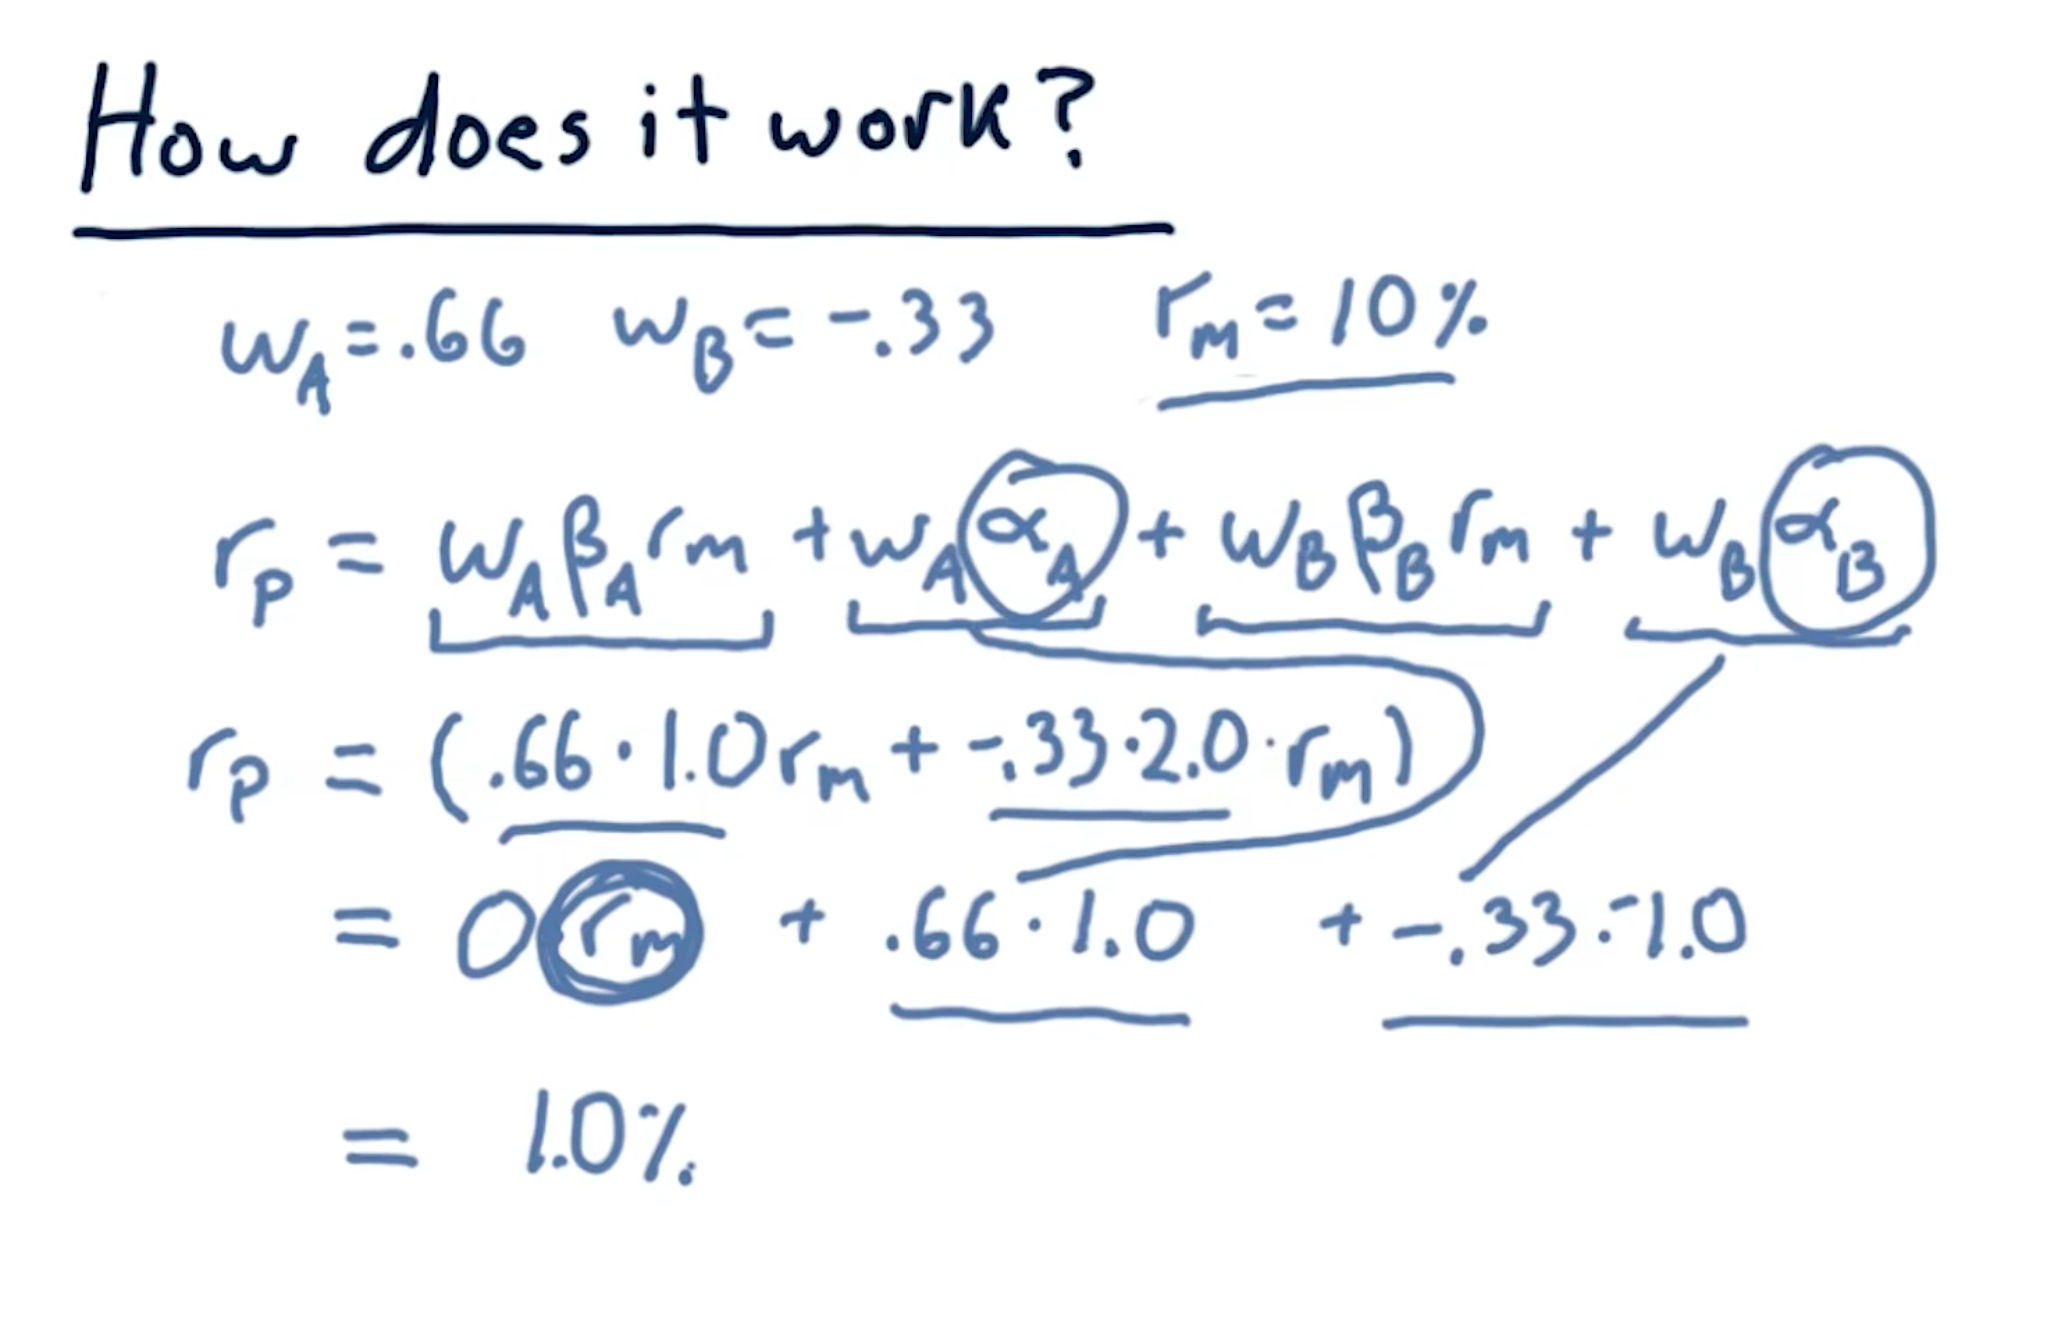 How does it work?
w_A = .66 w_B = -.33 r_m = 10%
r_p = w_A β_A r_m + w_A α_A + w_B β_B r_m + w_B α_B
r_p = (.66 · 1.0 r_m + -.33 · 2.0 · r_m)
= 0 r_m + .66 · 1.0 + -.33 · -1.0
= 1.0%